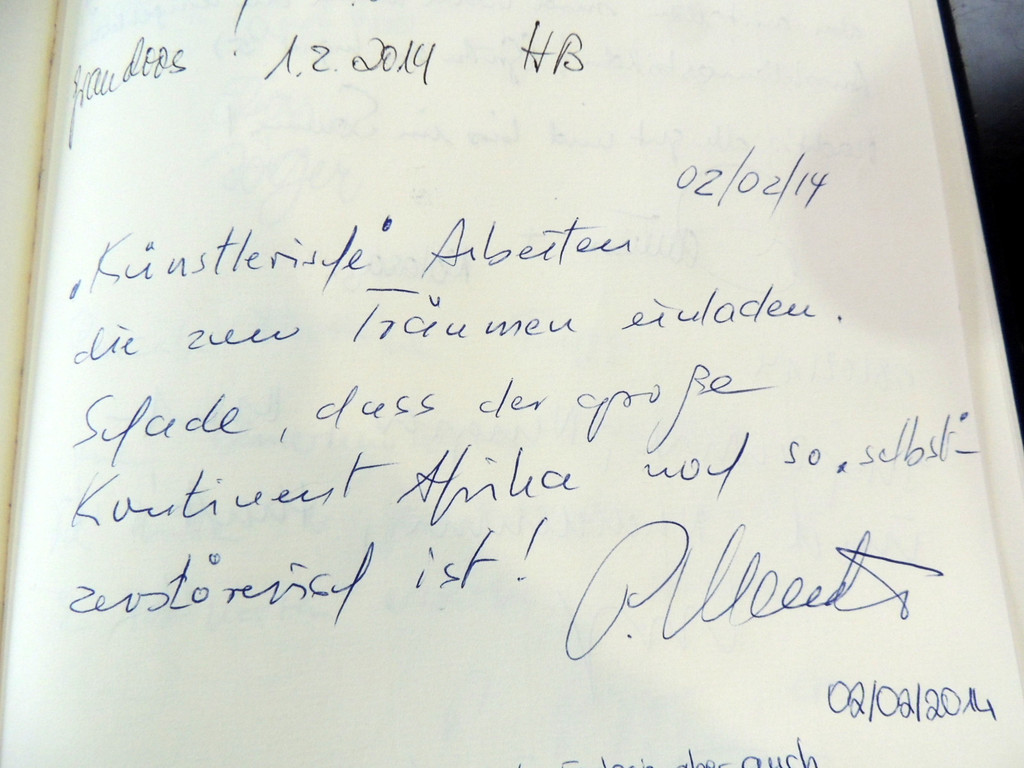 grandios! 1.2.2014 HB
02/02/14
„Künstlerische“ Arbeiten
die zum Träumen einladen.
Schade, dass der große
Kontinent Afrika noch so „selbst-
zerstörerisch ist!
P.
02/02/2014
aber auch